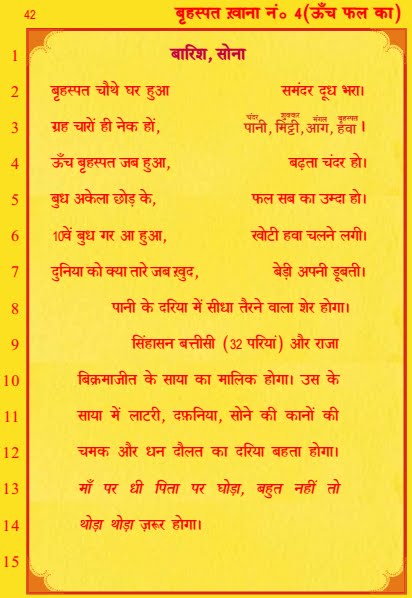 42 बृहस्पत ख़ाना नं० 4(ऊँच फल का)
1 बारिश, सोना
2 बृहस्पत चौथे घर हुआ समंदर दूध भरा।
चंदर शुक्कर मंगल बृहस्पत
3 ग्रह चारों ही नेक हों, पानी, मिट्टी, आग, हवा।
4 ऊँच बृहस्पत जब हुआ, बढ़ता चंदर हो।
5 बुध अकेला छोड़ के, फल सब का उम्दा हो।
6 10वें बुध गर आ हुआ, खोटी हवा चलने लगी।
7 दुनिया को क्या तारे जब ख़ुद, बेड़ी अपनी डूबती।
8 पानी के दरिया में सीधा तैरने वाला शेर होगा।
9 सिंहासन बत्तीसी (32 परियां) और राजा
10 बिक्रमाजीत के साया का मालिक होगा। उस के
11 साया में लाटरी, दफ़निया, सोने की कानों की
12 चमक और धन दौलत का दरिया बहता होगा।
13 माँ पर धी पिता पर घोड़ा, बहुत नहीं तो
14 थोड़ा थोड़ा ज़रूर होगा।
15